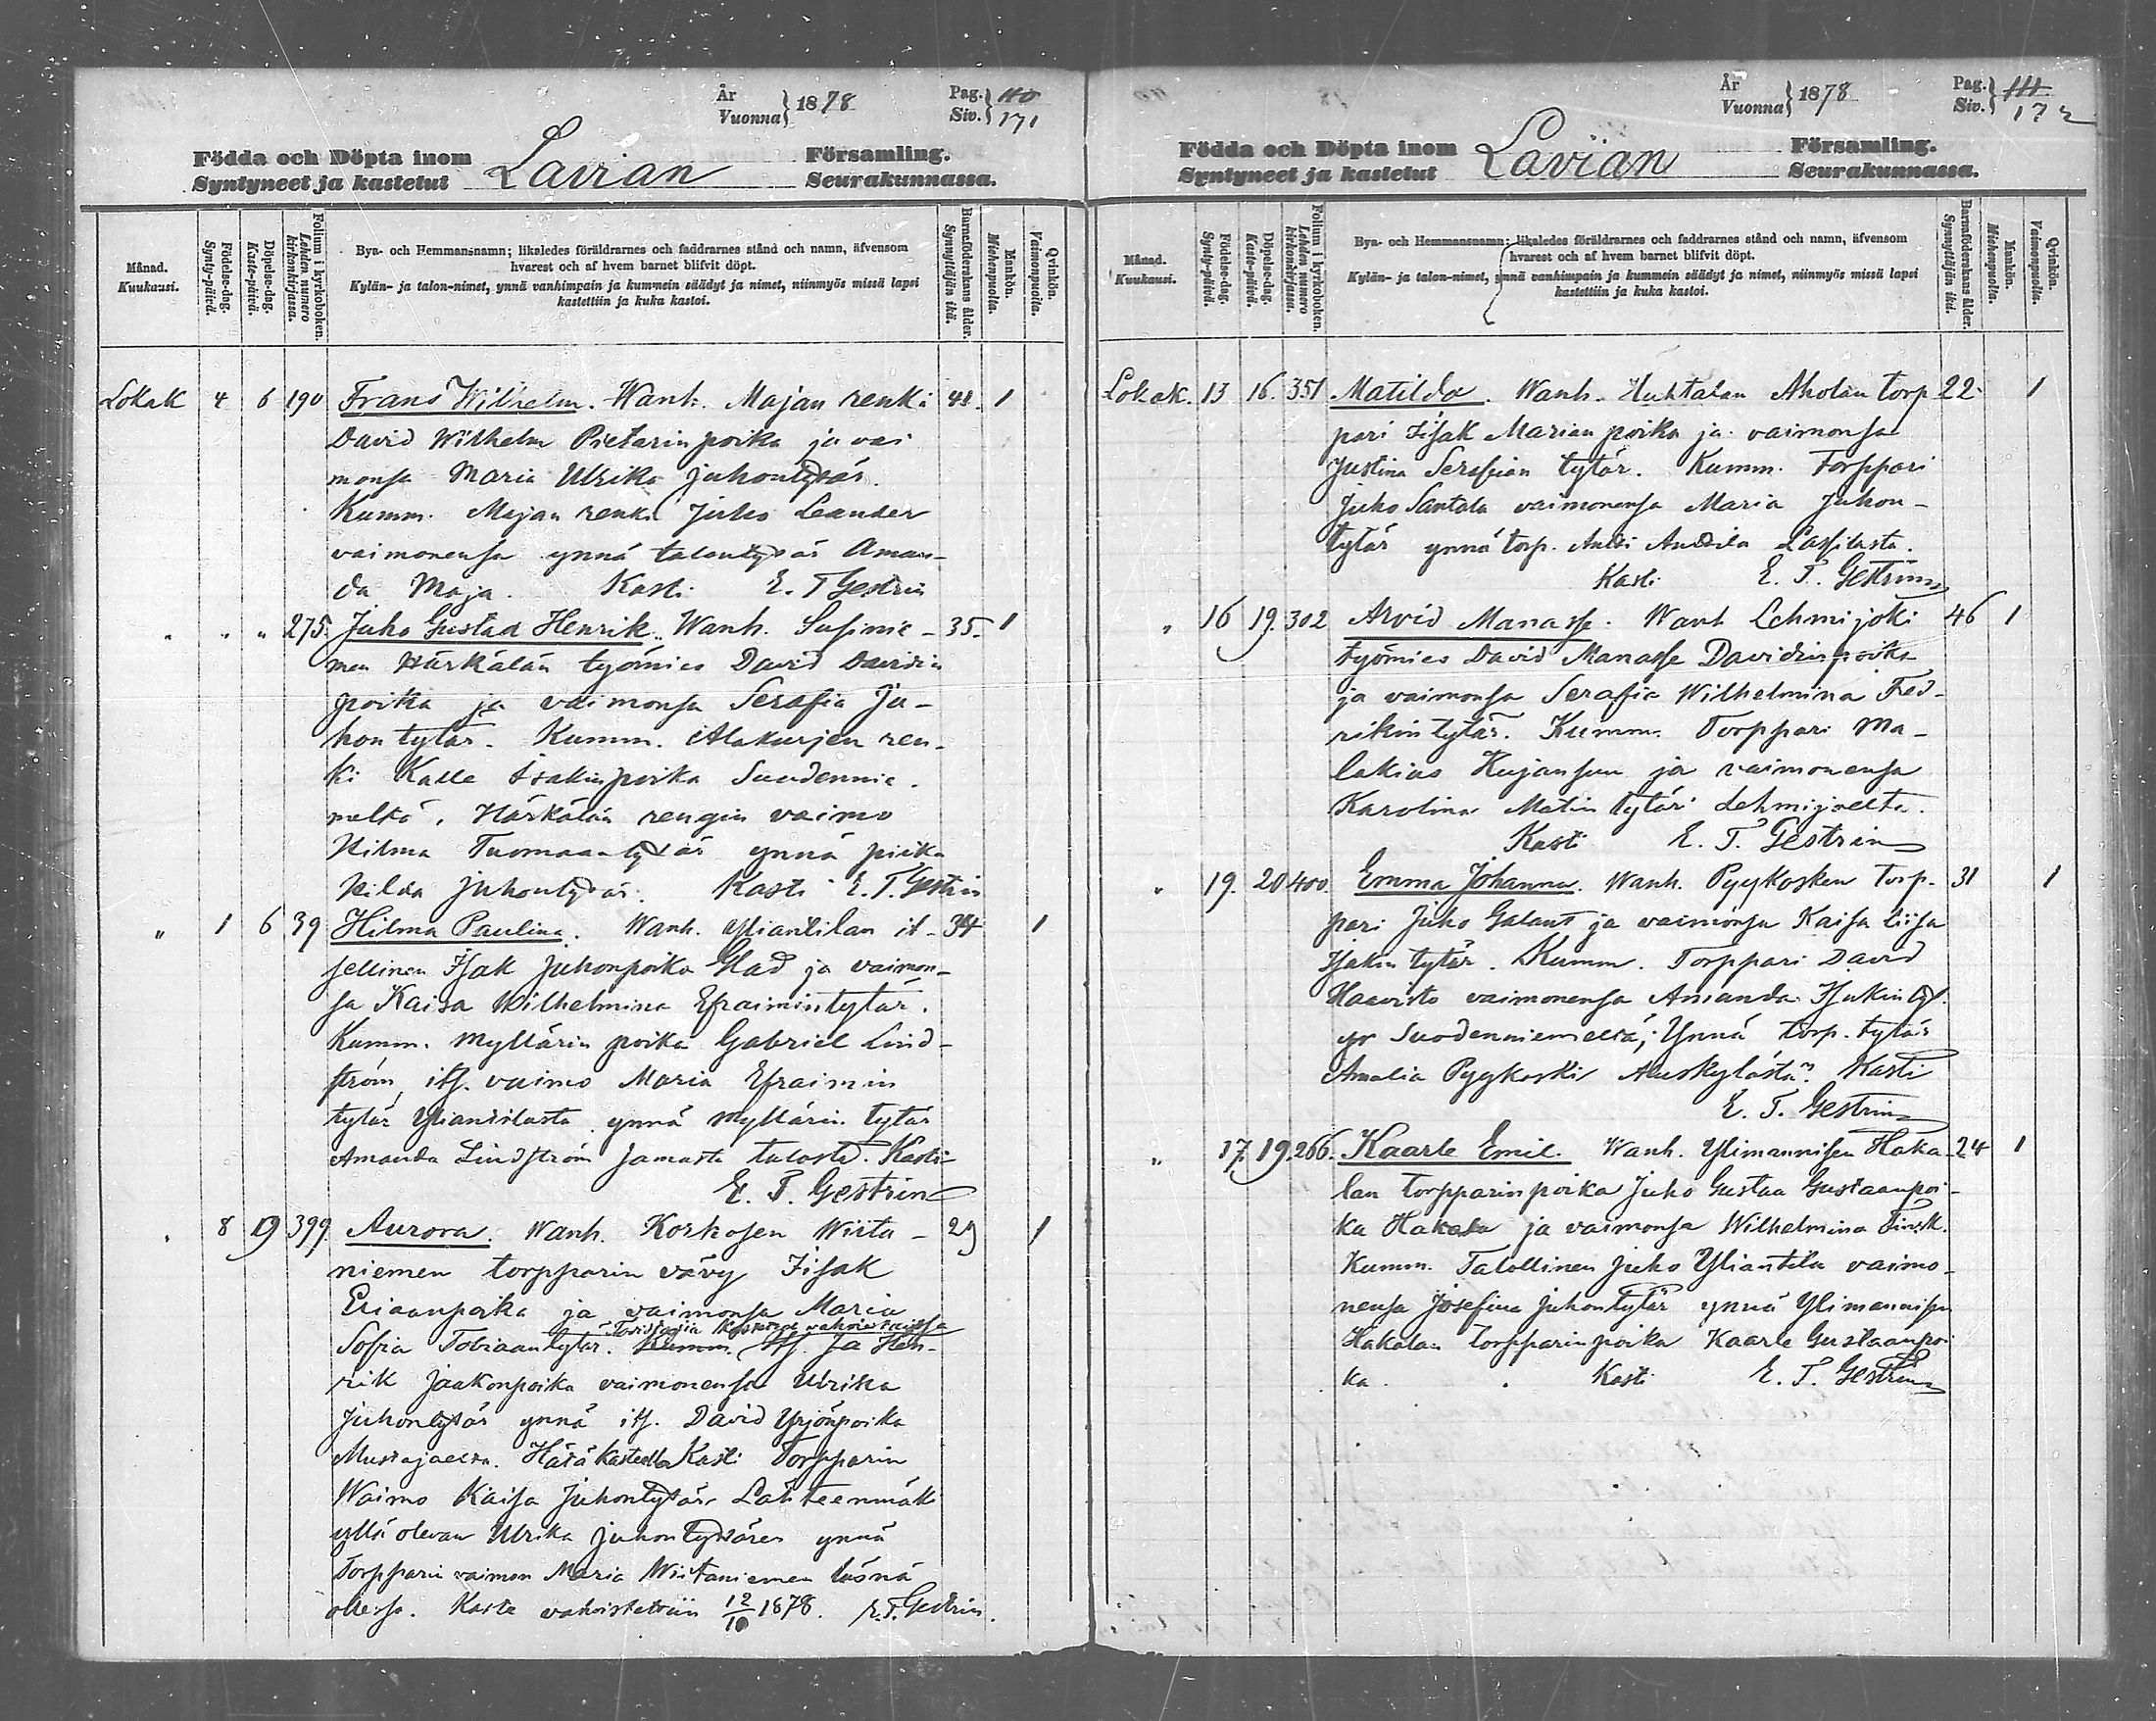 År
Vuonna } 1878
Pag.
Siv. } 110
171
Födda och Döpta inom
Syntyneet ja kastetut
Lavian
Församling.
Seurakunnassa.
Månad.
Kuukausi.
Födelse-dag.
Synty-päivä.
Döpelse-dag.
Kaste-päivä.
Folium i kyrkoboken.
Lehden numero kirkonkirjassa.
Bya- och Hemmansnamn; likaledes föräldrarnes och faddrarnes stånd och namn, äfvensom
hvarest och af hvem barnet blifvit döpt.
Kylän- ja talon-nimet, ynnä vanhimpain ja kummein säädyt ja nimet, niinmyös missä lapsi
kastettiin ja kuka kastoi.
Barnaföderskans ålder.
Synnyttäjän ikä.
Mankön.
Miehenpuolta.
Qvinkön.
Vaimonpuolta.
Lokak 4 6 190 Frans Wilhelm. Wanh. Majan renki 1
David Wilhelm Pietarinpoika ja vai
monsa Maria Ulrika Juhontytär.
Kumm. Majan renki Juho Leander
vaimonensa ynnä talontytär Aman-
da Maja. Kasti E. T Gestrin
" " " 275. Juho Gustaa Henrik. Wanh. Susinie- 35. 1
men Härkälän työmies David Davidin
poika ja vaimonsa Serafia Ju-
hontytär. Kumm. Alakurjen ren-
ki Kalle Isakinpoika Suodennie-
meltä, Härkälän rengin vaimo
Hilma Tuomaantytär ynnä piika
Hilda Juhontytär. Kasti E. T. Gestrin
" 1 6 39 Hilma Paulina. Wanh. Yliantilan it- 34 1
sellinen Isak Juhonpoika Glad ja vaimon-
sa Kaisa Wilhelmina Efraimintytär.
Kumm. Myllärin poika Gabriel Lind-
ström, its. vaimo Maria Efraimin
tytär Yliantilasta ynnä Myllärin tytär
Amanda Lindström samasta talosta. Kasti
E. T. Gestrin
" 8 19 399 Aurora. Wanh. Korhosen Wiita- 29 1
niemen torpparin vävy Iisak
Eriaanpoika ja vaimonsa Maria
Todistajia kasteen vahvistaissa
Sofia Tobiaantytär. Kumm. Its. Ja Hen-
rik Jaakonpoika vaimonensa Ulrika
Juhontytär ynnä its. David Yrjönpoika
Mustajaelta. Hätäkasteella Kasti Torpparin
Waimo Kaisa Juhontytär Lähteenmäki
yllä olevan Ulrika Juhontyttären ynnä
Torpparin vaimon Maria Wiitaniemen läsnä
ollessa. Kaste vahvistettiin 12/10 1878. E. T. Gestrin.
År
Vuonna } 1878
Pag.
Siv. } 111
172
Födda och Döpta inom
Syntyneet ja kastetut
Lavian
Församling.
Seurakunnassa.
Månad.
Kuukausi.
Födelse-dag.
Synty-päivä.
Döpelse-dag.
Kaste-päivä.
Folium i kyrkoboken.
Lehden numero kirkonkirjassa.
Bya- och Hemmansnamn; likaledes föräldrarnes och faddrarnes stånd och namn, äfvensom
hvarest och af hvem barnet blifvit döpt.
Kylän- ja talon-nimet, ynnä vanhimpain ja kummein säädyt ja nimet, niinmyös missä lapsi
kastettiin ja kuka kastoi.
Barnaföderskans ålder.
Synnyttäjän ikä.
Mankön.
Miehenpuolta.
Qvinkön.
Vaimonpuolta.
Lokak. 13 16. 351 Matilda. Wanh. Huhtalan Aholan torp 22 1
pari Iisak Marian poika ja vaimonsa
Justina Serafian tytär. Kumm. Torppari
Juho Santala vaimonensa Maria Juhon-
tytär ynnä torp. Antti Anttila Lassilasta.
Kasti E. T. Gestrin
" 16 19. 302 Arvid Manasse. Wanh Lehmijoki 46 1
työmies David Manasse Davidinpoika
ja vaimonsa Serafia Wilhelmina Fred-
rikintytär. Kumm. Torppari Ma-
lakias Kujansuu ja vaimonensa
Karolina Matintytär Lehmijoelta.
Kasti E. T. Gestrin
" 19. 20 400. Emma Johanna. Wanh. Pyykosken Torp- 31 1
pari Juho Galant ja vaimonsa Kaisa Liisa
Isakin tytär. Kumm. Torppari David
Haavisto vaimonensa Amanda Isakin tyt.
Suodenniemeltä; Ynnä torp. tytär
Amalia Pyykoski Auskylästä. Kasti
E. T. Gestrin
" 17. 19. 266. Kaarle Emil. Wanh. Ylimannisen Haka- 24 1
lan torpparinpoika Juho Gustaa Gustaanpoi-
ka Hakala ja vaimonsa Wilhelmina
Kumm. Talollinen Juho Yliantila vaimo-
nensa Josefina Juhontytär ynnä Ylimannisen
Hakalan torpparinpoika Kaarle Gustaanpoi
ka. Kasti E. T. Gestrin